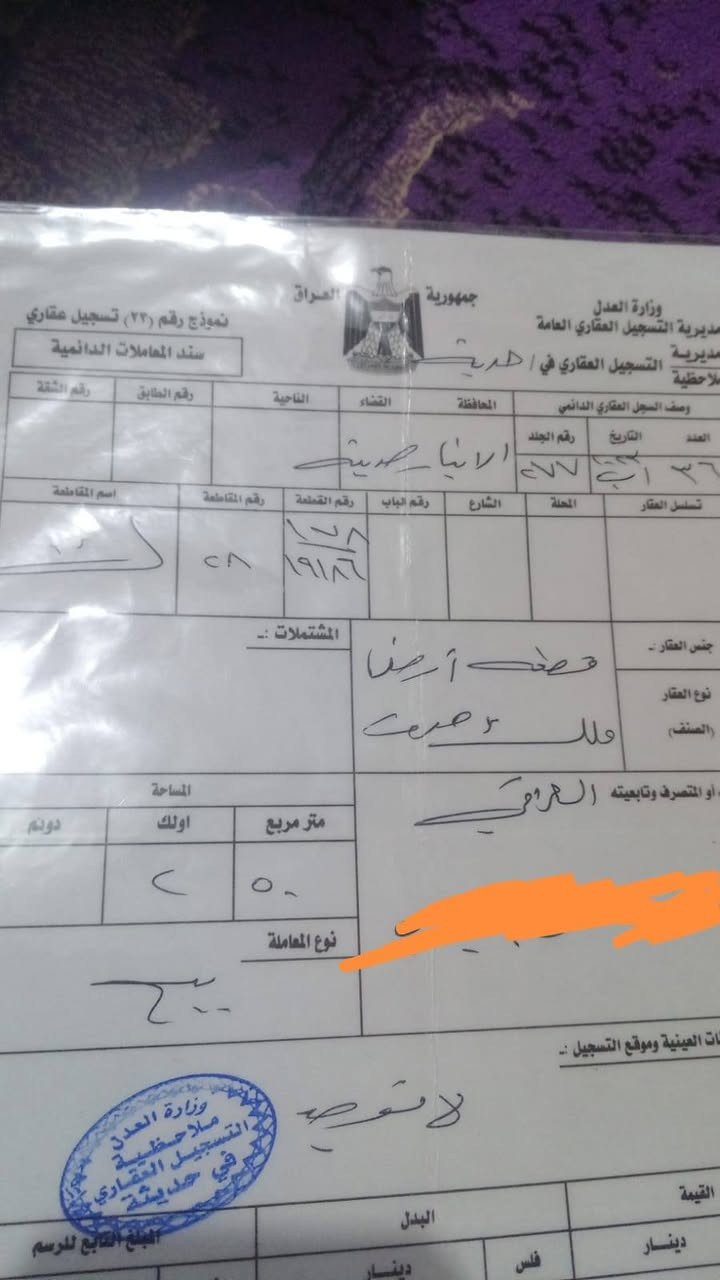 جمهورية العراق
وزارة العدل
مديرية التسجيل العقاري العامة
مديرية
ملاحظية
التسجيل العقاري في / حديثة
نموذج رقم (٢٣) تسجيل عقاري
سند المعاملات الدائمية
وصف السجل العقاري الدائمي المحافظة القضاء الناحية رقم الطابق رقم الشقة
العدد التاريخ رقم الجلد
٣٦ آب ٢٧٧ الانبار حديثة
تسلسل العقار المحلة الشارع رقم الباب رقم القطعة رقم المقاطعة اسم المقاطعة
١٩١٨٦ ٢٨
جنس العقار :ـ قطعة أرض
المشتملات :ـ
نوع العقار
(الصنف) ملك صرف
أو المتصرف وتابعيته العراقي
المساحة
متر مربع اولك دونم
٥٠ ٢
نوع المعاملة
بيع
العينية وموقع التسجيل :ـ
لا توجد
وزارة العدل
ملاحظية
التسجيل العقاري
في حديثة
القيمة البدل المبلغ التابع للرسم
دينار فلس دينار